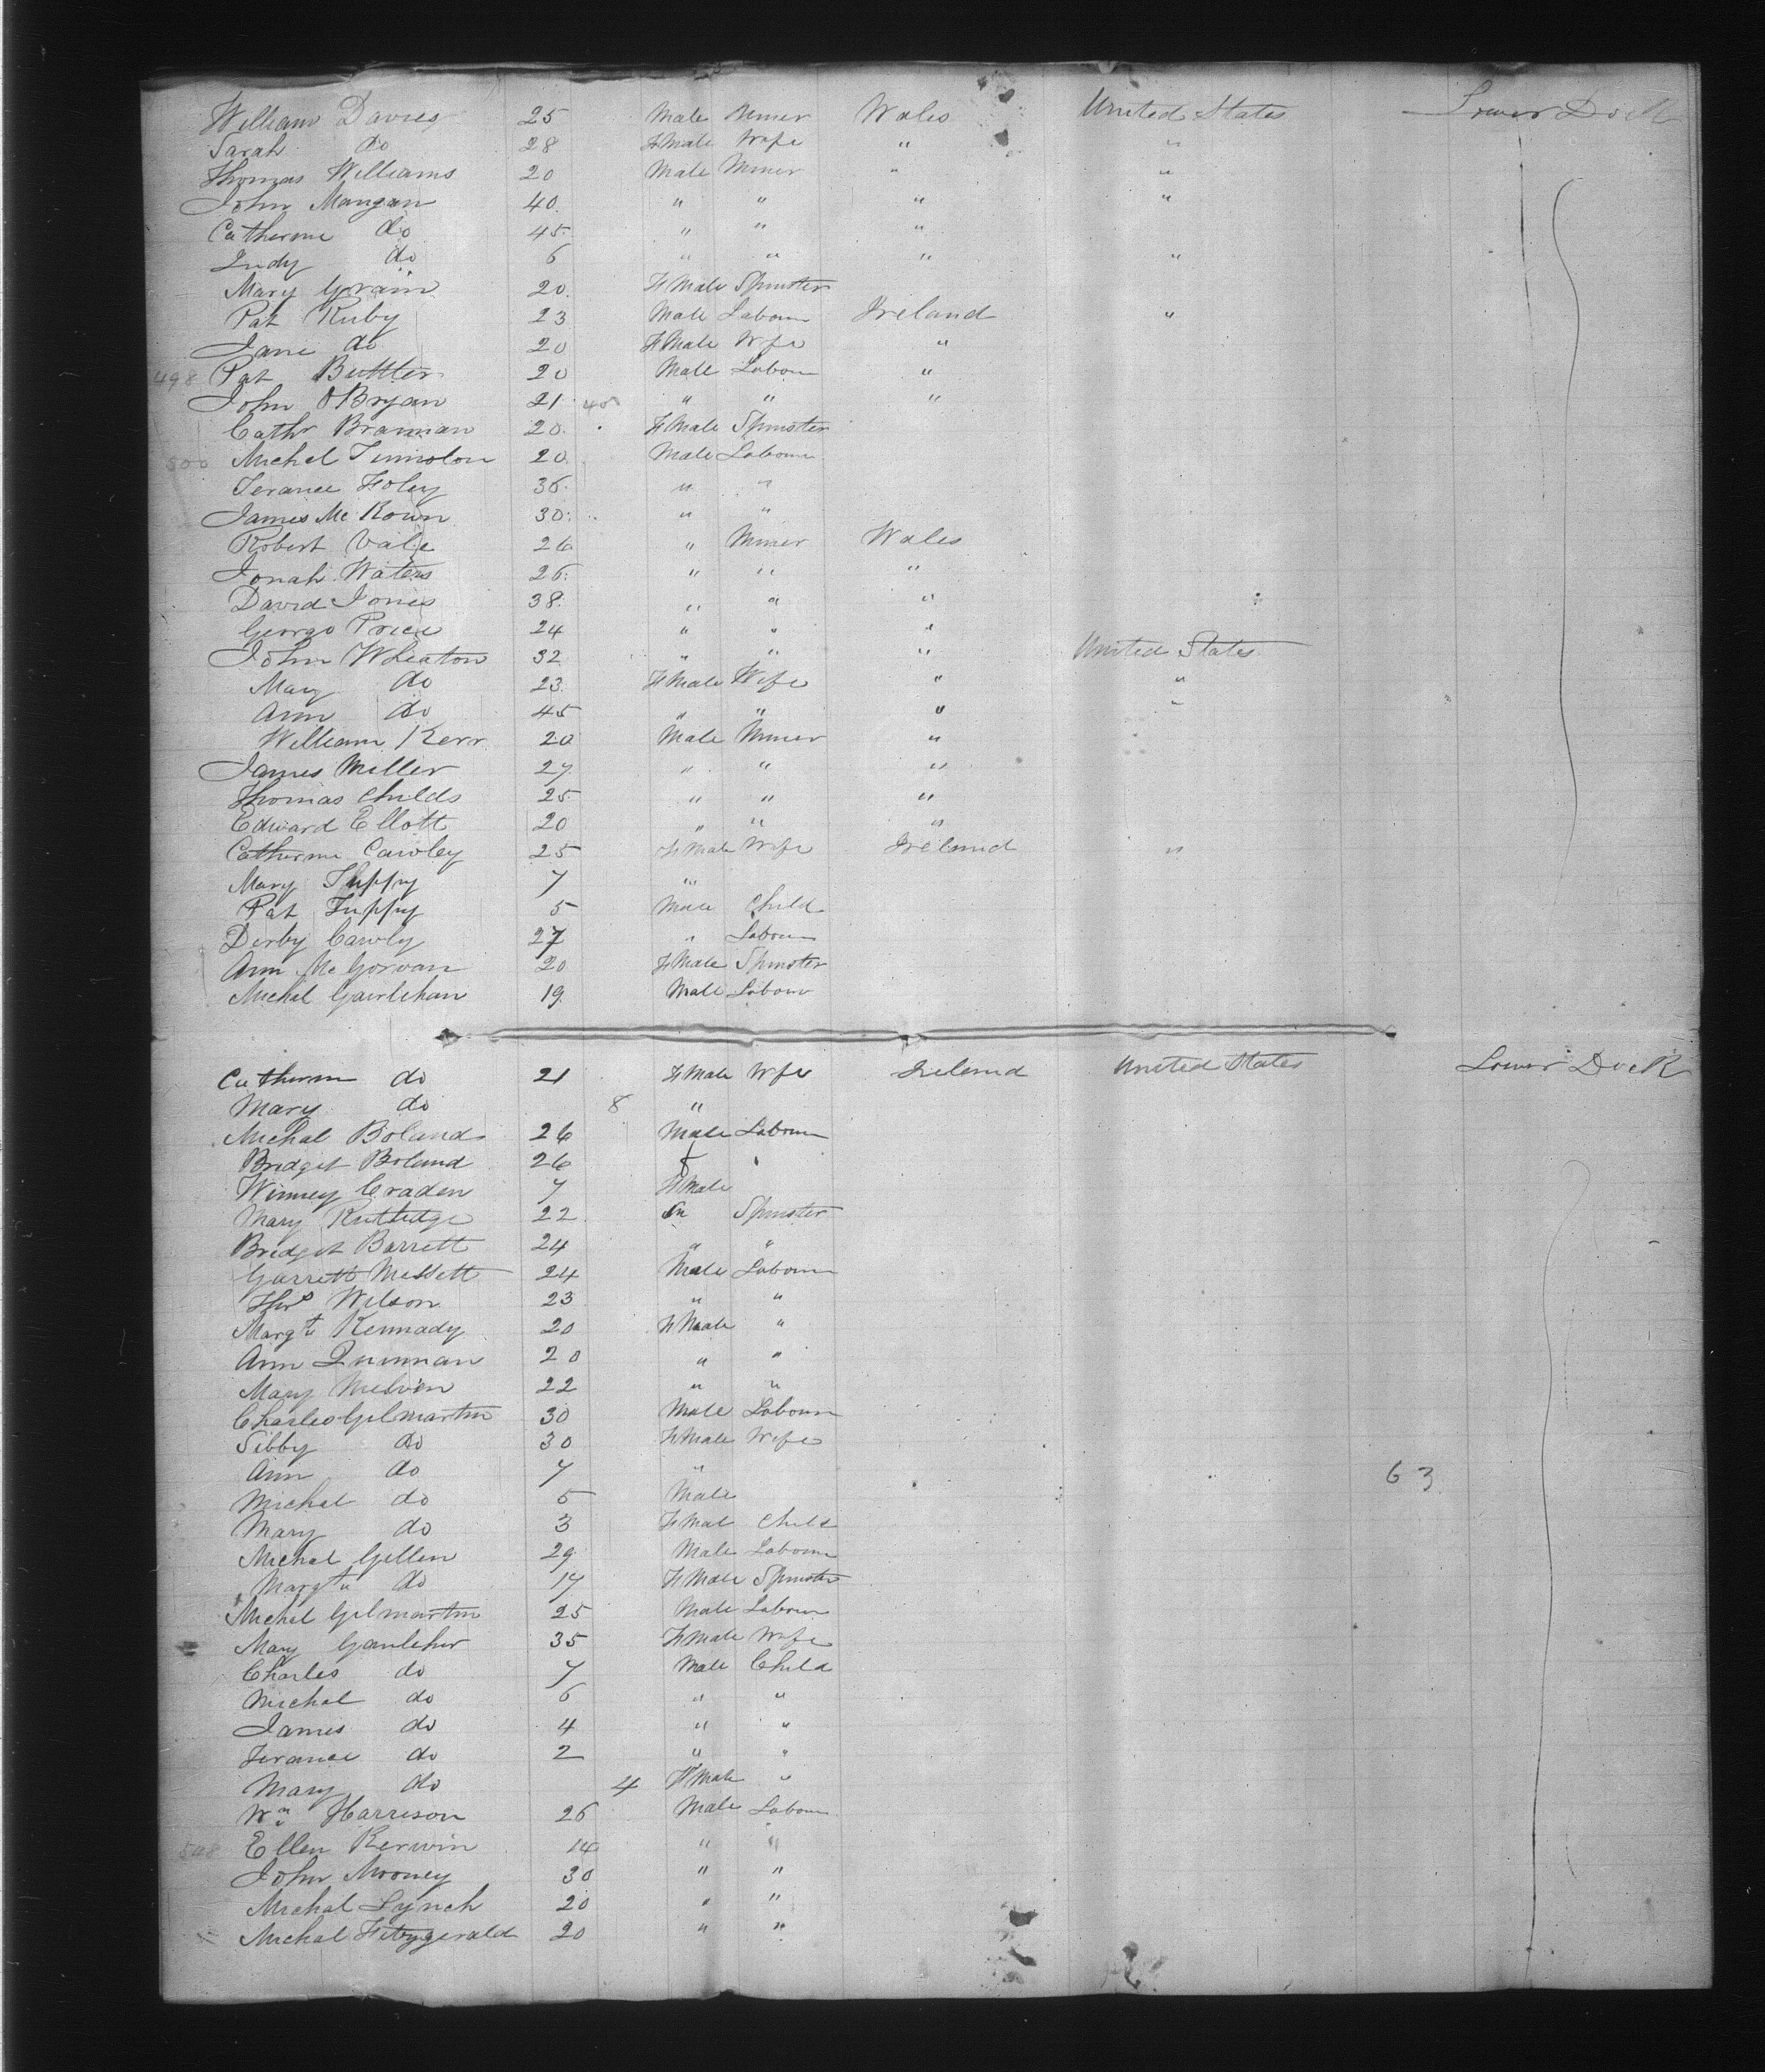 William Davies 25 Male Miner Wales United States Lower Deck
Sarah do 28 FMale Wife " "
Thomas Williams 20 Male Miner " "
John Mangan 40 " " " "
Catherine do 45 " " "
Judy do 6 " " " "
Mary 20 FMale Spinster
Pat Ruby 23 Male Labour Ireland "
Jane do 20 FMale Wife "
498 Pat Buttler 20 Male Labour "
John OBryan 21 " " "
Cathr Brannan 20 FMale Spinster
500 Michel 20 Male Labour
Terance Foley 36 " "
James Mc Kown 30 " "
Robert Vale 26 " Miner Wales
Jonah Waters 26 " " "
David Jones 38 " " "
George Price 24 " " "
John Wheaton 32 " " " United States
Mary do 23 FMale Wife " "
Ann do 45 " " " "
William Kerr 20 Male Miner "
James Miller 27 " " "
Thomas Childs 25 " " "
Edward Ellott 20 " " "
Catherine Cawley 25 FMale Wife Ireland "
Mary 7 "
Pat 5 Male Child
Derby Cawly 27 " Labour
Ann McGowan 20 FMale Spinster
Michal 19 Male Labour
Catherine do 21 FMale Wife Ireland United States Lower Deck
Mary do 8 "
Michal Boland 26 Male Labour
Bridget Boland 26
Winney Craden 7 FMale
Mary Rutledge 22 Spinster
Bridget Barrett 24 " "
Garrett Messett 24 Male Labour
Thos Wilson 23 " "
Margt Kennady 20 FMale "
Ann Quinnan 20 " "
Mary Melvin 22 " "
Charles Gilmartin 30 Male Labour
Sibby do 30 FMale Wife
Ann do 7 " 63
Michal do 5 Male
Mary do 3 FMal Child
Michal Gillen 29 Male Labour
Margt do 17 FMale Spinster
Michel Gilmartin 25 Male Labour
Mary 35 FMale Wife
Charles do 7 Male Child
Michal do 6 " "
James do 4 " "
Terance do 2 " "
Mary do 4 FMale "
Wm Harrison 26 Male Labour
508 Ellen Kerwin 14 " "
John Mooney 30 " "
Michal Lynch 20 " "
Michal Fitzgerald 20 " "